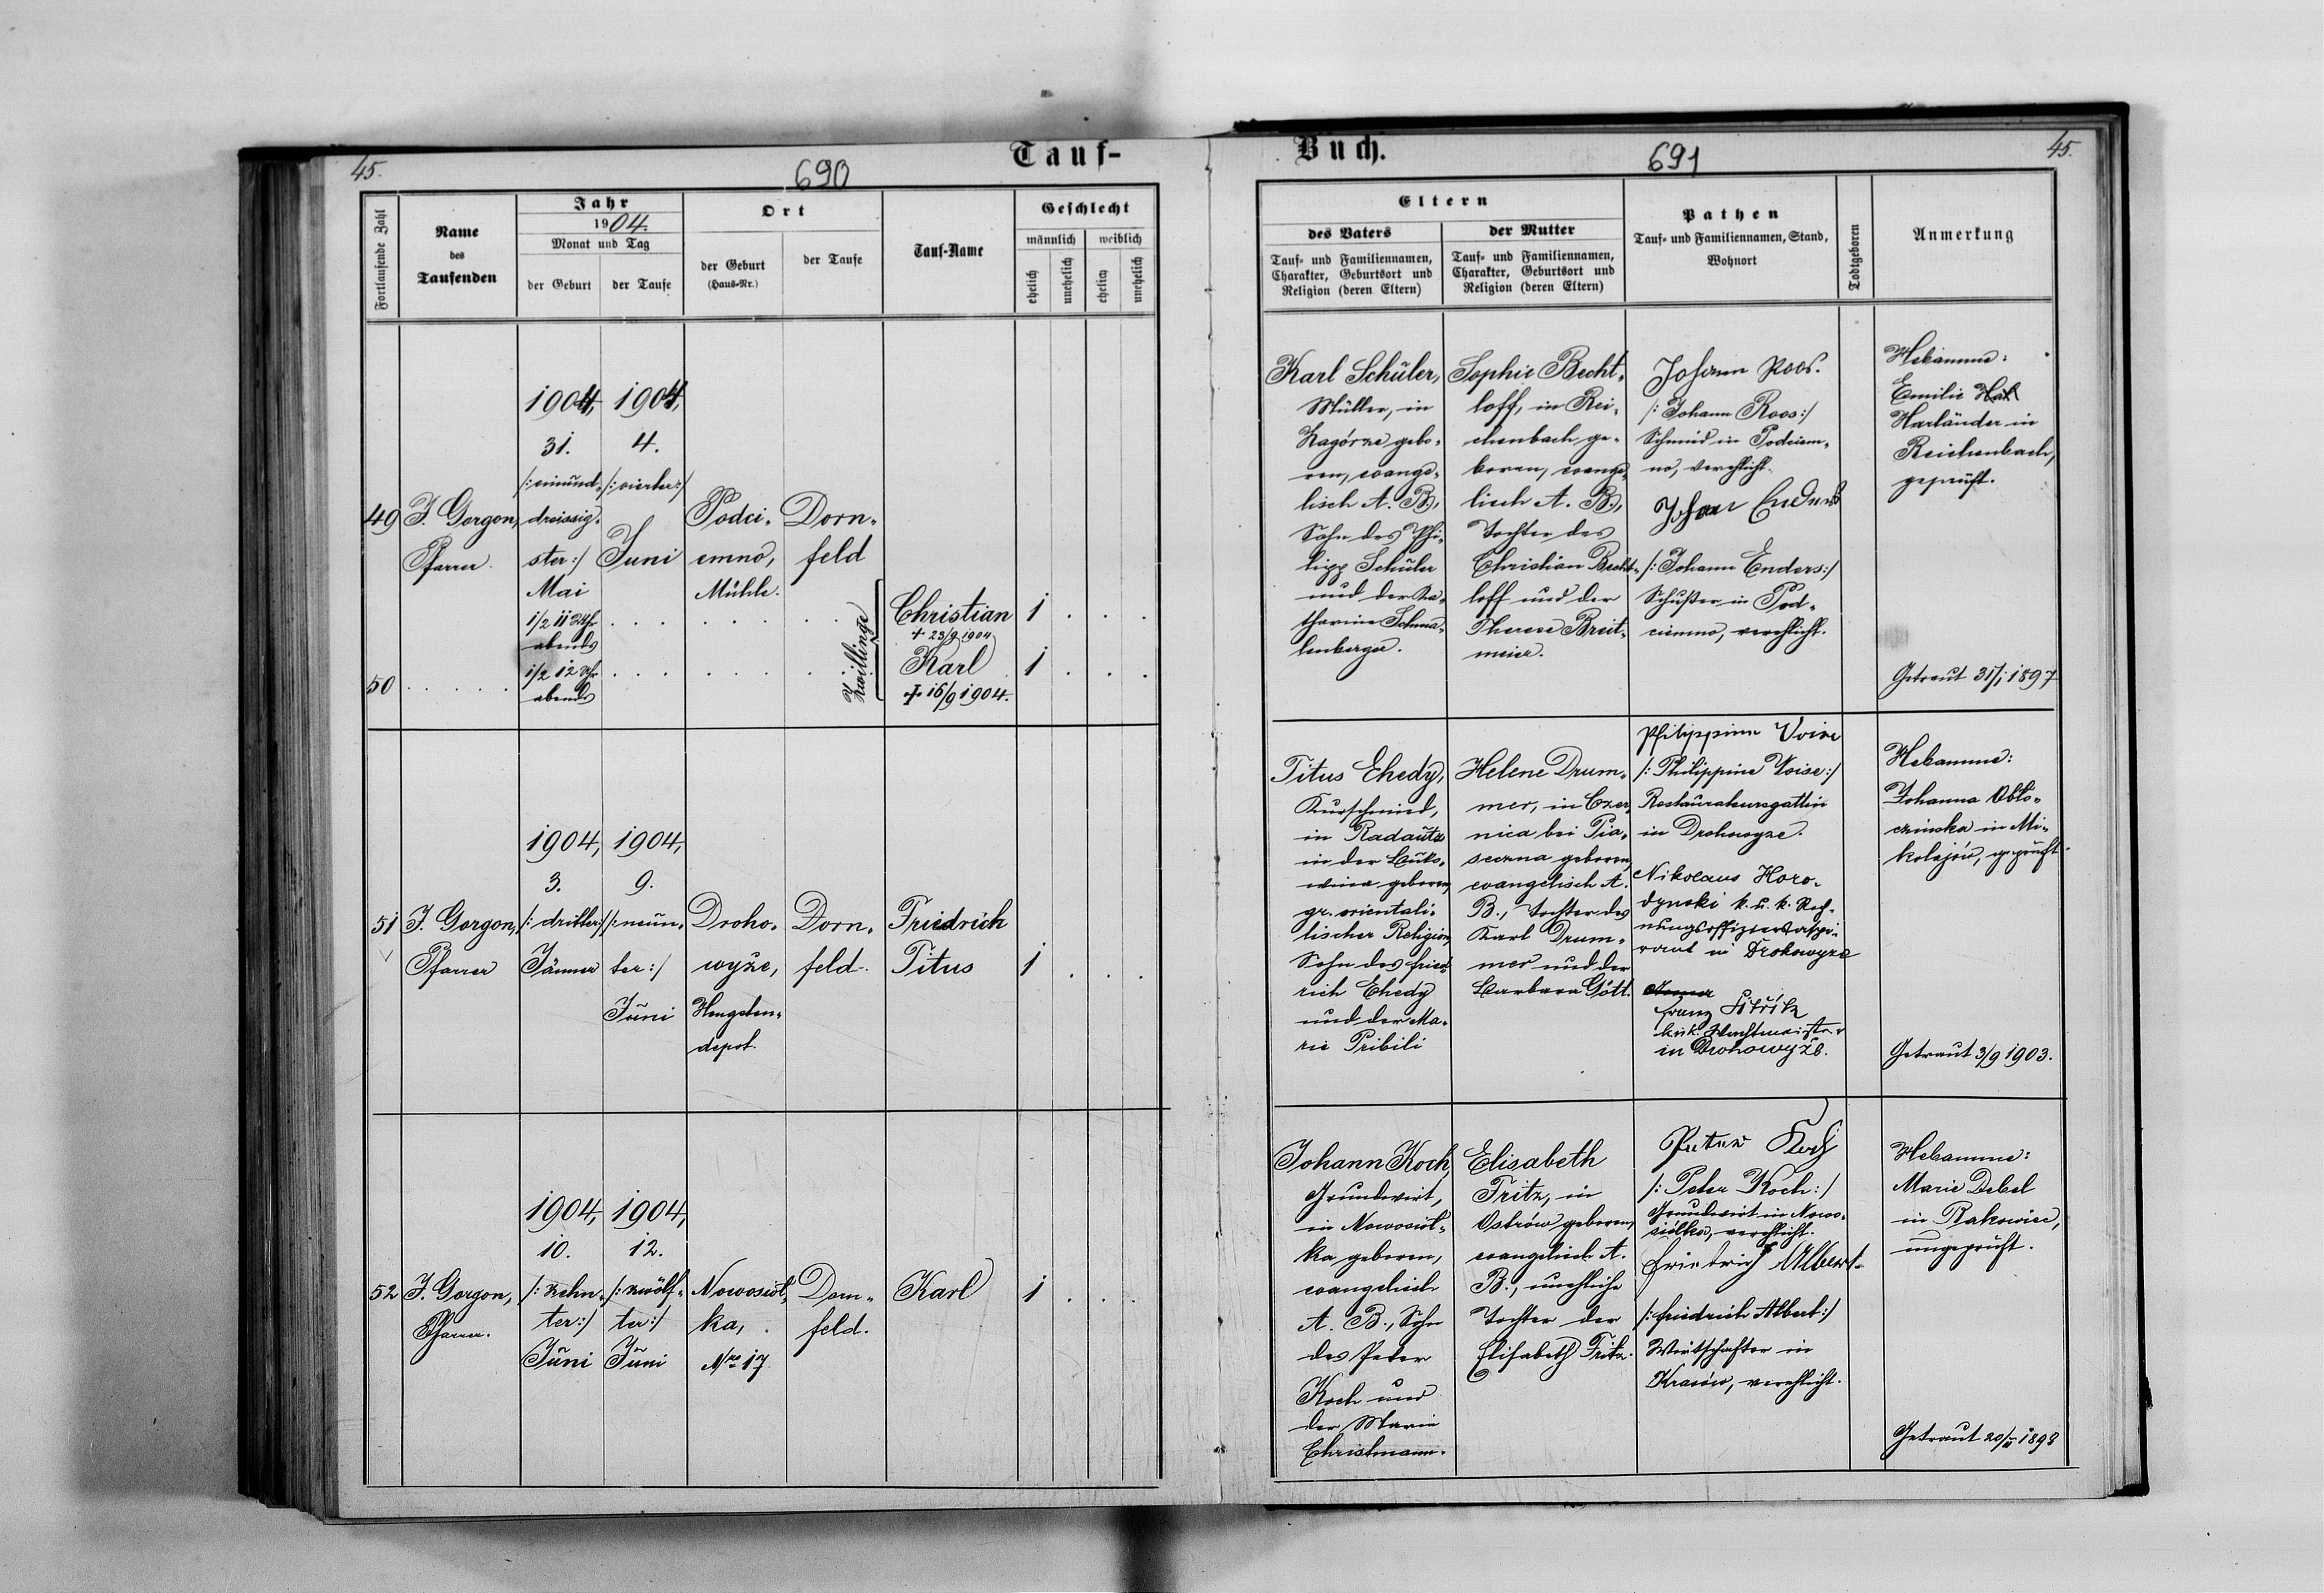 45.
690
Tauf-
Fortlaufende Zahl
Name
des
Taufenden
Jahr
1904.
Monat und Tag
der Geburt
der Taufe
Ort
der Geburt
(Haus-Nr.)
der Taufe
Tauf-Name
Geschlecht
männlich
weiblich
ehelich
unehelich
ehelich
unehelich
49
J. Gorgon,
Pfarrer.
1904,
31.
/:einund-
dreissig-
ster:/
Mai
1/2 11 Uhr
abends
1904,
4.
/:vierter:/
Juni
Podci-
emno,
Mühle.
Dorn-
feld
Zwillinge
Christian
+ 23/9 1904
1 . . .
50
1/2 12 Uhr
abends
Karl
+ 16/9 1904.
1 . . .
51
J. Gorgon,
Pfarrer
1904,
3.
/:dritter:/
Jänner
1904,
9.
/:neun-
ter:/
Juni
Droho-
wyże,
Hengsten-
depot.
Dorn-
feld.
Friedrich
Titus
1 . . .
52
J. Gorgon,
Pfarrer.
1904,
10.
/:zehn-
ter:/
Juni
1904,
12.
/:zwölf-
ter:/
Juni
Nowosiół-
ka,
Nro 17.
Dorn-
feld.
Karl
1 . . .
Buch.
691
45.
Eltern
des Vaters
Tauf- und Familiennamen,
Charakter, Geburtsort und
Religion (deren Eltern)
der Mutter
Tauf- und Familiennamen,
Charakter, Geburtsort und
Religion (deren Eltern)
Pathen
Tauf- und Familiennamen, Stand,
Wohnort
Todtgeboren
Anmerkung
Karl Schüler,
Müller, in
Zagórze gebo-
ren, evange-
lisch A. B.,
Sohn des Phi-
lipp Schüler
und der Ka-
tharine Schma-
lenberger.
Sophie Becht-
loff, in Rei-
chenbach ge-
boren, evange-
lisch A. B.,
Tochter des
Christian Becht-
loff und der
Therese Breit-
meier.
Johann Roos.
/:Johann Roos:/
Schmied in Podciem-
no, verehlicht.
Johann Enders
/:Johann Enders:/
Schuster in Pod-
ciemno, verehlicht.
Hebamme:
Emilie
Harländer in
Reichenbach,
geprüft.
Getraut 31/1 1897
Titus Ehedy,
Kurschmied,
in Radautz
in der Buko-
wina geboren,
gr. orientali-
lischer Religion,
Sohn des Fried-
rich Ehedy
und der Ma-
rie Pribili
Helene Drum-
mer, in Czer-
nica bei Pia-
seczna geboren,
evangelisch A.
B., Tochter des
Karl Drum-
mer und der
Barbara Gött.
Philippine Voise
/:Philippine Voise:/
Restaurateursgattin
in Drohowyże.
Nikolaus Horo-
dynski k. u. k. Rech-
nungsoffiziersaspi-
rant in Drohowyże
Franz
k.u.k. Wachtmeister
in Drohowyże.
Hebamme:
Johanna Obło-
czinska in Mi-
kolajów, geprüft.
Getraut 3/9 1903.
Johann Koch,
Grundwirt,
in Nowosiół-
ka geboren,
evangelisch
A. B., Sohn
des Peter
Koch und
der Marie
Christmann.
Elisabeth
Fritz, in
Ostrów geboren,
evangelisch A.
B., uneheliche
Tochter der
Elisabeth Fritz.
Peter Koch
/:Peter Koch:/
Grundwirt in Nowo-
siółka, verehlicht.
Friedrich Albert.
/:Friedrich Albert:/
Wirtschafter in
Krasów, verehlicht.
Hebamme:
Marie Debel
in Rakowiec,
ungeprüft.
Getraut 20/II 1898